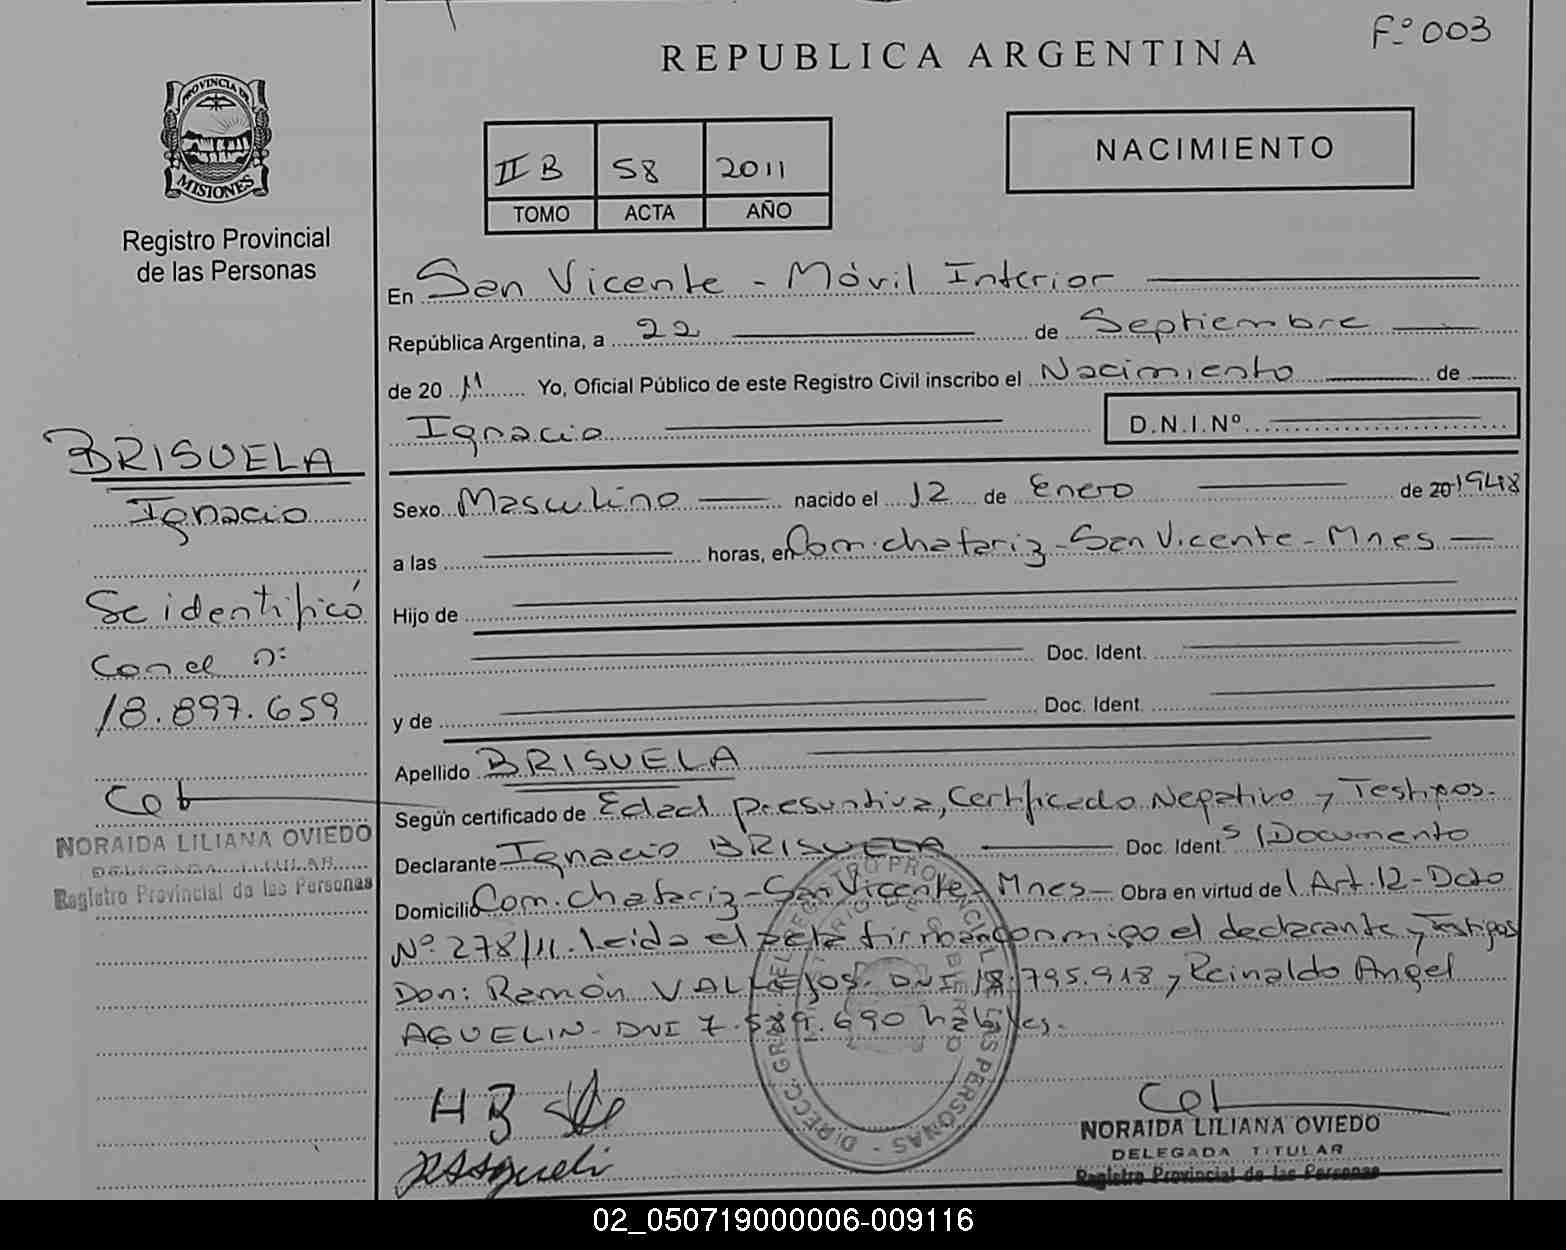 F.º 003
REPUBLICA ARGENTINA
PROVINCIA DE
MISIONES
Registro Provincial
de las Personas
II B 58 2011
TOMO ACTA AÑO
NACIMIENTO
En San Vicente - Móvil Interior
República Argentina, a 22 de Septiembre
de 20 11 Yo, Oficial Público de este Registro Civil inscribo el Nacimiento de
Ignacio D.N.I.Nº
BRISUELA
Ignacio
Se identificó
con el nº
18.897.659
NORAIDA LILIANA OVIEDO
DELEGADA TITULAR
Registro Provincial de las Personas
Sexo Masculino nacido el 12 de Enero de 20 1948
a las horas, en Com. chafariz - San Vicente - Mnes
Hijo de
Doc. Ident.
y de Doc. Ident.
Apellido BRISUELA
Según certificado de Edad presuntiva, Certificado Negativo y Testigos.
Declarante Ignacio BRISUELA Doc. Ident. S/Documento
Domicilio Com. chafariz - San Vicente - Mnes Obra en virtud de l Art. 12 - Dcto
Nº 278/11. Leida el acta firman conmigo el declarante y Testigos
Don: Ramón VALLEJOS. DNI 18.795.918 y Reinaldo Angel
AGUELIN - DNI 7.589.690 habiles.
H B
NORAIDA LILIANA OVIEDO
DELEGADA TITULAR
Registro Provincial de las Personas
02_050719000006-009116